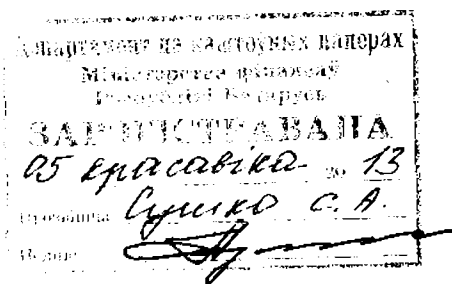 Дэпартамент па каштоўных паперах
Міністэрства фінансаў
Рэспублікі Беларусь
ЗАРЭГІСТРАВАНА
05 красавіка 20 13
Сушко С. А.